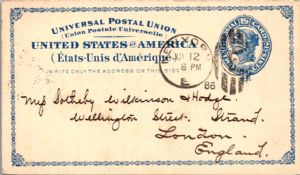 UNIVERSAL POSTAL UNION
(Union Postale Universelle)
UNITED STATES OF AMERICA
(États-Unis d'Amérique)
WRITE ONLY THE ADDRESS ON THIS SIDE
12
8 PM
E
86
Sotheby Wilkinson & Hodge.
Wellington Street. Strand.
London.
England.